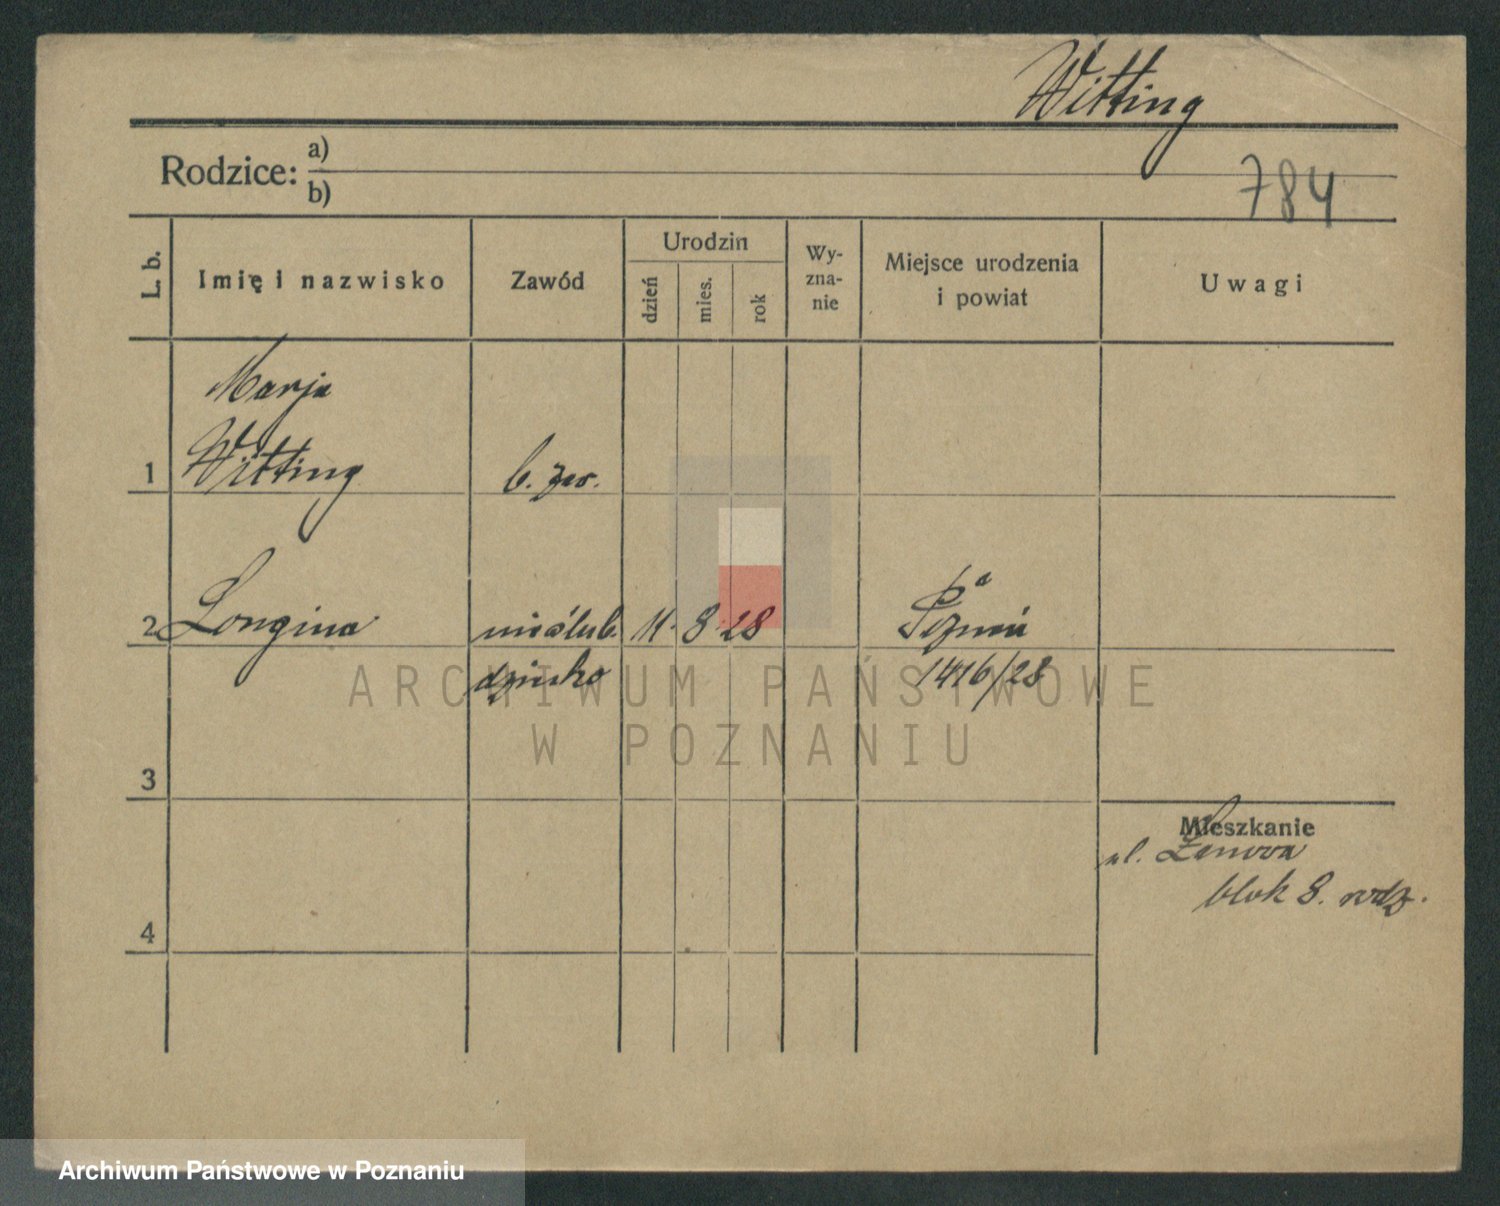 Witting
Rodzice: a)
b)
784
L. b.
Imię i nazwisko
Zawód
Urodzin
dzień
mies.
rok
Wy-
zna-
nie
Miejsce urodzenia
i powiat
Uwagi
Marja
1 Witting b. zaw.
2 Longina nieślub. 11. 8. 28 Poznań
dziecko 1416/28
ARCHIWUM PAŃSTWOWE
W POZNANIU
3
Mieszkanie
ul.
blok 8. rodz.
4
Archiwum Państwowe w Poznaniu